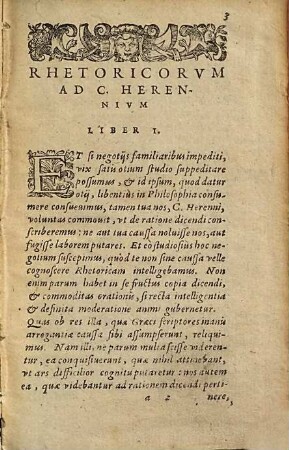 3
RHETORICORVM
AD C. HEREN-
NIVM
LIBER I.
ET si negotijs familiaribus impediti,
vix satis otium studio suppeditare
possumus, & id ipsum, quod datur
otij, libentius in Philosophia consu-
mere consueuimus, tamen tua nos, C. Herenni,
voluntas commouit, vt de ratione dicendi con-
scriberemus: ne aut tua caussa noluisse nos, aut
fugisse laborem putares. Et eo studiosius hoc ne-
gotium suscepimus, quod te non sine caussa velle
cognoscere Rhetoricam intelligebamus. Non
enim parum habet in se fructus copia dicendi,
& commoditas orationis, si recta intelligentia
& definita moderatione animi gubernetur.
Quas ob res illa, quæ Græci scriptores inanis
arrogantiæ caussa sibi assumpserunt, reliqui-
mus. Nam illi, ne parum multa scisse videren-
tur, ea conquisiuerunt, quæ nihil attinebant,
vt ars difficilior cognitu putaretur: nos autem
ea, quæ videbantur ad rationem dicendi perti-
a 2 nere,